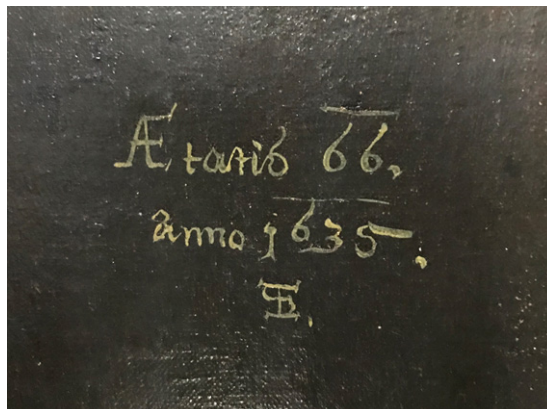 Ætatis 66.
anno 1635.